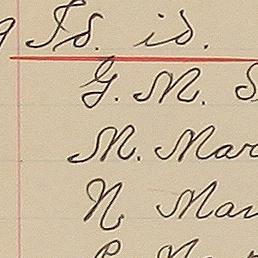 Id. id.
G. M.
M. Mar
N. Mar